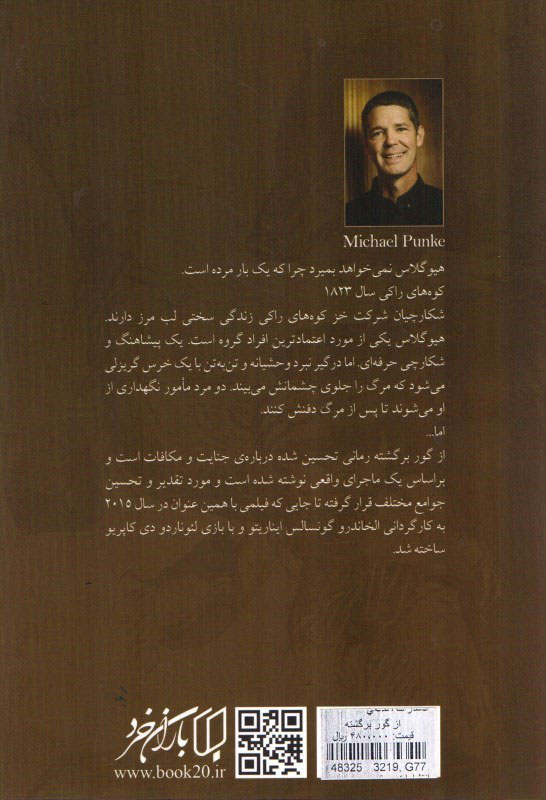 Michael Punke
هیو گلاس نمی‌خواهد بمیرد چرا که یک بار مرده است.
کوه‌های راکی سال ۱۸۲۳
شکارچیان شرکت خز کوه‌های راکی زندگی سختی لب مرز دارند.
هیو گلاس یکی از مورد اعتمادترین افراد گروه است. یک پیشاهنگ و
شکارچی حرفه‌ای. اما درگیر نبرد وحشیانه و تن‌به‌تن با یک خرس گریزلی
می‌شود که مرگ را جلوی چشمانش می‌بیند. دو مرد مأمور نگهداری از
او می‌شوند تا پس از مرگ دفنش کنند.
اما...
از گور برگشته رمانی تحسین شده درباره‌ی جنایت و مکافات است و
براساس یک ماجرای واقعی نوشته شده است و مورد تقدیر و تحسین
جوامع مختلف قرار گرفته تا جایی که فیلمی با همین عنوان در سال ۲۰۱۵
به کارگردانی الخاندرو گونسالس ایناریتو و با بازی لئوناردو دی کاپریو
ساخته شد.
باران خرد
www.book20.ir
از گور برگشته
قیمت: ۴۸۰,۰۰۰ ریال
48325 3219, G77